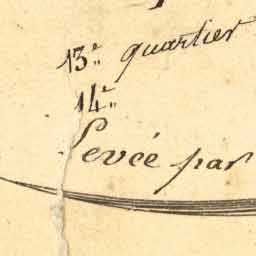 13.e quartier
14.e
Levée par